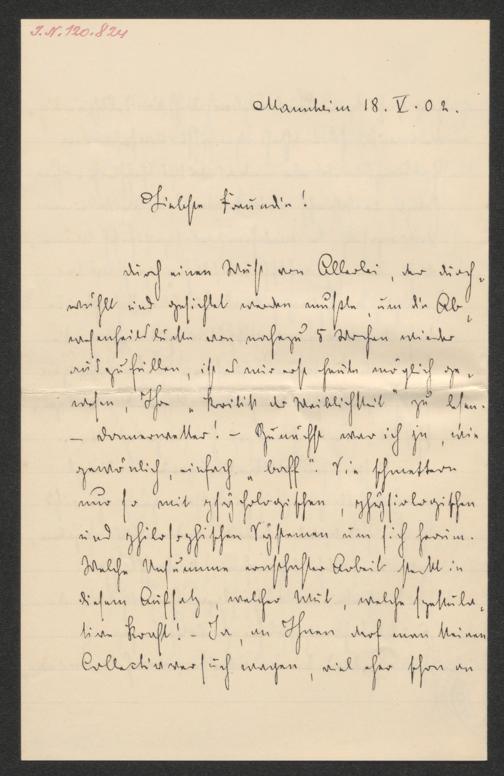 J.N. 120.824
Mannheim 18. V. 02.
Liebste Freundin!
Durch einen Wust von Allerlei, der durch-
wühlt und gesichtet werden mußte, um die Ab-
wesenheitslücke von nahezu 5 Wochen wieder
auszufüllen, ist es mir erst heute möglich ge-
wesen, Ihre „Kritik der Weiblichkeit" zu lesen.
– Donnerwetter! – Zunächst war ich ja, wie
gewönlich, einfach „baff". Sie schmettern
nur so mit psychologischen, physiologischen
und philosophischen Systemen um sich herum.
Welche Unsumme ernsthafter Arbeit steckt in
diesem Aufsatz, welcher Mut, welche spekula-
tive Kraft! – Ja, an Ihnen darf man keinen
Collectivversuch wagen, viel eher schon an